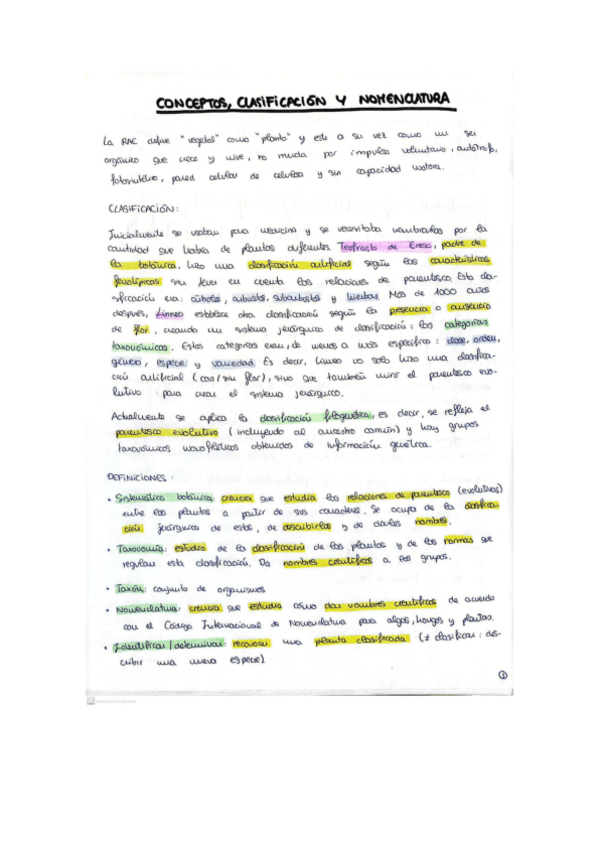 CONCEPTOS, CLASIFICACIÓN Y NOMENCLATURA
La RAE define "vegetal" como "planta" y este a su vez como un ser
orgánico que crece y vive, no muda por impulso voluntario, autótrofo,
fotosintético, pared celular de celulosa y sin capacidad motora.
CLASIFICACIÓN:
Inicialmente se usaban para medicina y se necesitaba nombrarlas por la
cantidad que había de plantas diferentes. Teofrasto de Ereso, padre de
la botánica, hizo una clasificación artificial según las características
fenotípicas sin tener en cuenta las relaciones de parentesco. Esta cla-
sificación era: árboles, arbustos, subarbustos y hierbas. Más de 1000 años
después, Linneo establece otra clasificación según la presencia o ausencia
de flor, creando un sistema jerárquico de clasificación: las categorías
taxonómicas. Estas categorías eran, de menos a más específico: clase, orden,
género, especie y variedad. Es decir, Linneo no solo hizo una clasifica-
ción artificial (con/sin flor), sino que también miró el parentesco evo-
lutivo para crear el sistema jerárquico.
Actualmente se aplica la clasificación filogenética, es decir, se refleja el
parentesco evolutivo (incluyendo al ancestro común) y hay grupos
taxonómicos monofiléticos obtenidos de información genética.
DEFINICIONES:
• Sistemática botánica: ciencia que estudia las relaciones de parentesco (evolutivas)
entre las plantas a partir de sus caracteres. Se ocupa de la clasifica-
ción jerárquica de estas, de describirlas y de darles nombres.
• Taxonomía: estudio de la clasificación de las plantas y de las normas que
regulan esta clasificación. Da nombres científicos a los grupos.
• Taxón: conjunto de organismos
• Nomenclatura: ciencia que estudia cómo dar nombres científicos de acuerdo
con el Código Internacional de Nomenclatura para algas, hongos y plantas.
• Identificar/determinar: reconocer una planta clasificada (≠ clasificar: des-
cribir una nueva especie)
1